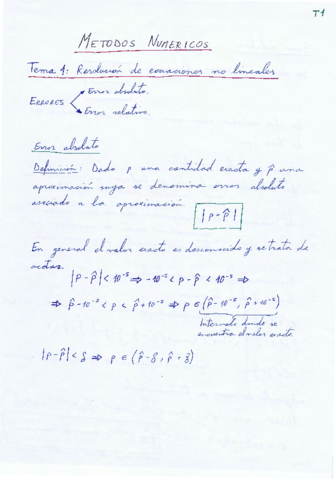 T1
METODOS NUMERICOS
Tema 1: Resolución de ecuaciones no lineales
Error absoluto.
ERRORES
Error relativo.
Error absoluto
Definición: Dado p una cantidad exacta y p̂ una
aproximación suya se denomina error absoluto
asociado a la aproximación.
|p-p̂|
En general el valor exacto es desconocido y se trata de
acotar.
|p-p̂| < 10⁻⁵ ⇒ -10⁻⁵ < p - p̂ < 10⁻⁵ ⇒
⇒ p̂-10⁻⁵ < p < p̂+10⁻⁵ ⇒ p ∈ (p̂-10⁻⁵, p̂+10⁻⁵)
Intervalo donde se
encuentra el valor exacto.
|p-p̂| < δ ⇒ p ∈ (p̂-δ, p̂+δ)